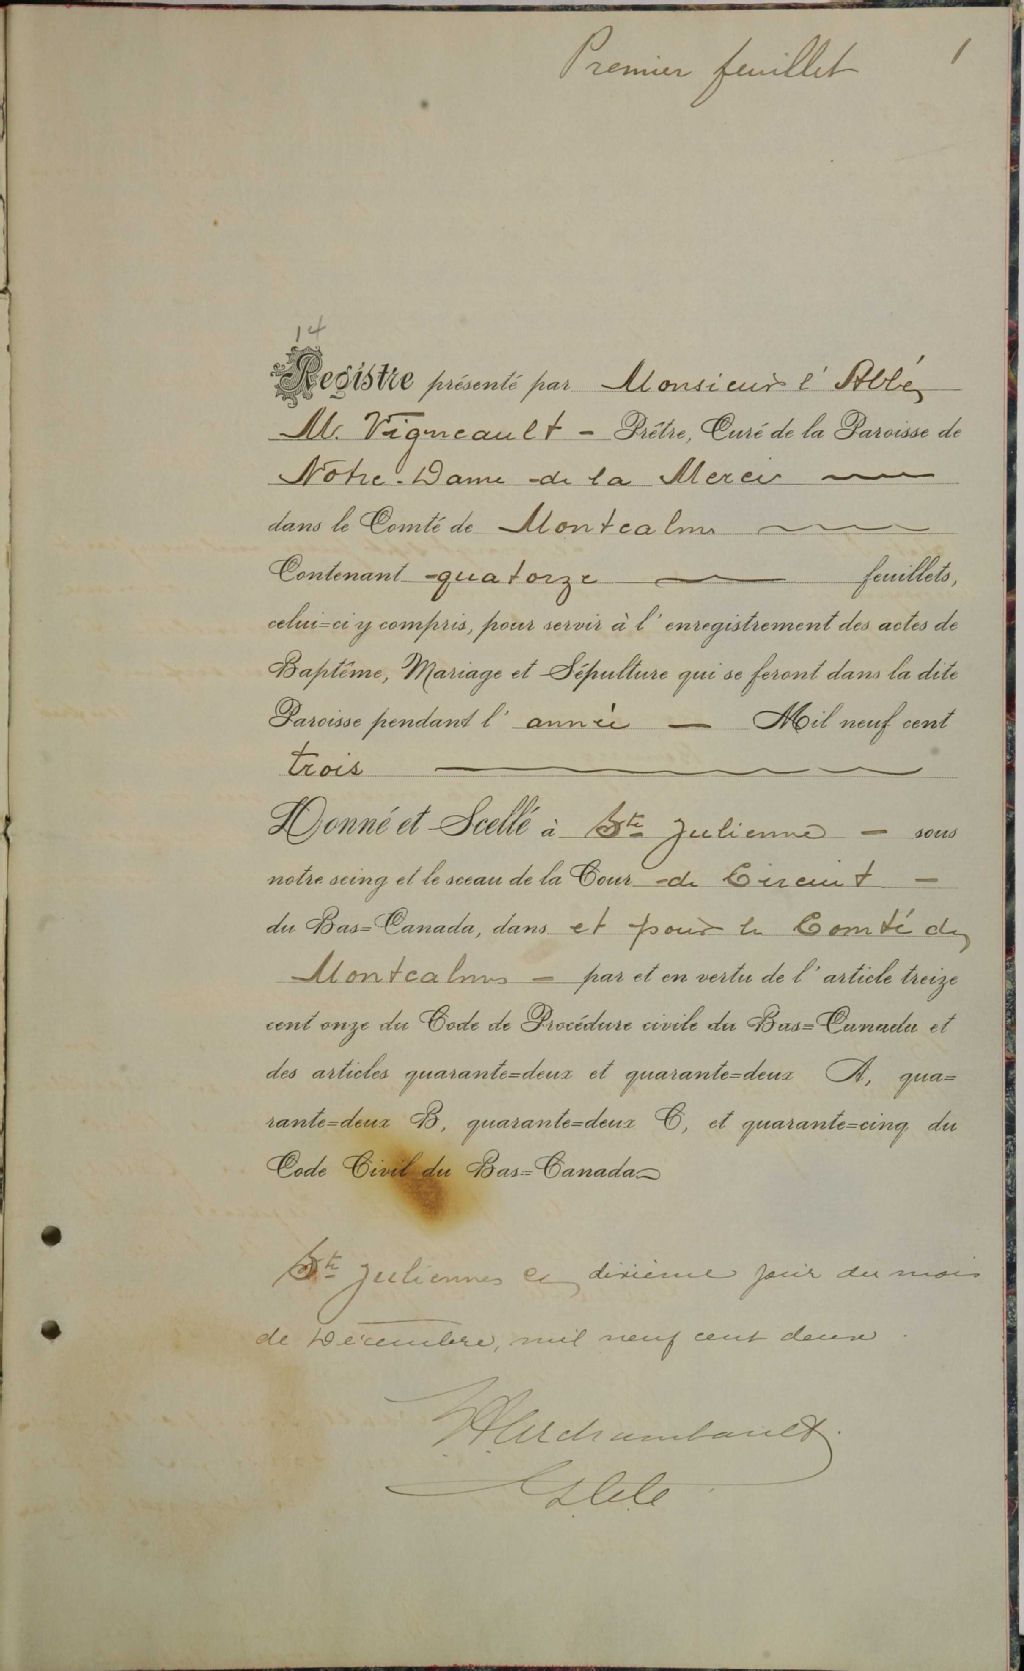 Premier feuillet 1
14
Registre présenté par Monsieur l'Abbé
M. Vigneault - Prêtre, Curé de la Paroisse de
Notre-Dame de la Merci
dans le Comté de Montcalm
Contenant quatorze feuillets,
celui=ci y compris, pour servir à l'enregistrement des actes de
Baptême, Mariage et Sépulture qui se feront dans la dite
Paroisse pendant l'année — Mil neuf cent
trois
Donné et Scellé à Ste Julienne - sous
notre seing et le sceau de la Cour de Circuit -
du Bas=Canada, dans et pour le Comté de
Montcalm - par et en vertu de l'article treize
cent onze du Code de Procédure civile du Bas=Canada et
des articles quarante=deux et quarante=deux A, qua=
rante=deux B, quarante=deux C, et quarante=cinq du
Code Civil du Bas=Canada
Ste Julienne ce dixième jour du mois
de Décembre, mil neuf cent deux.
Archambault